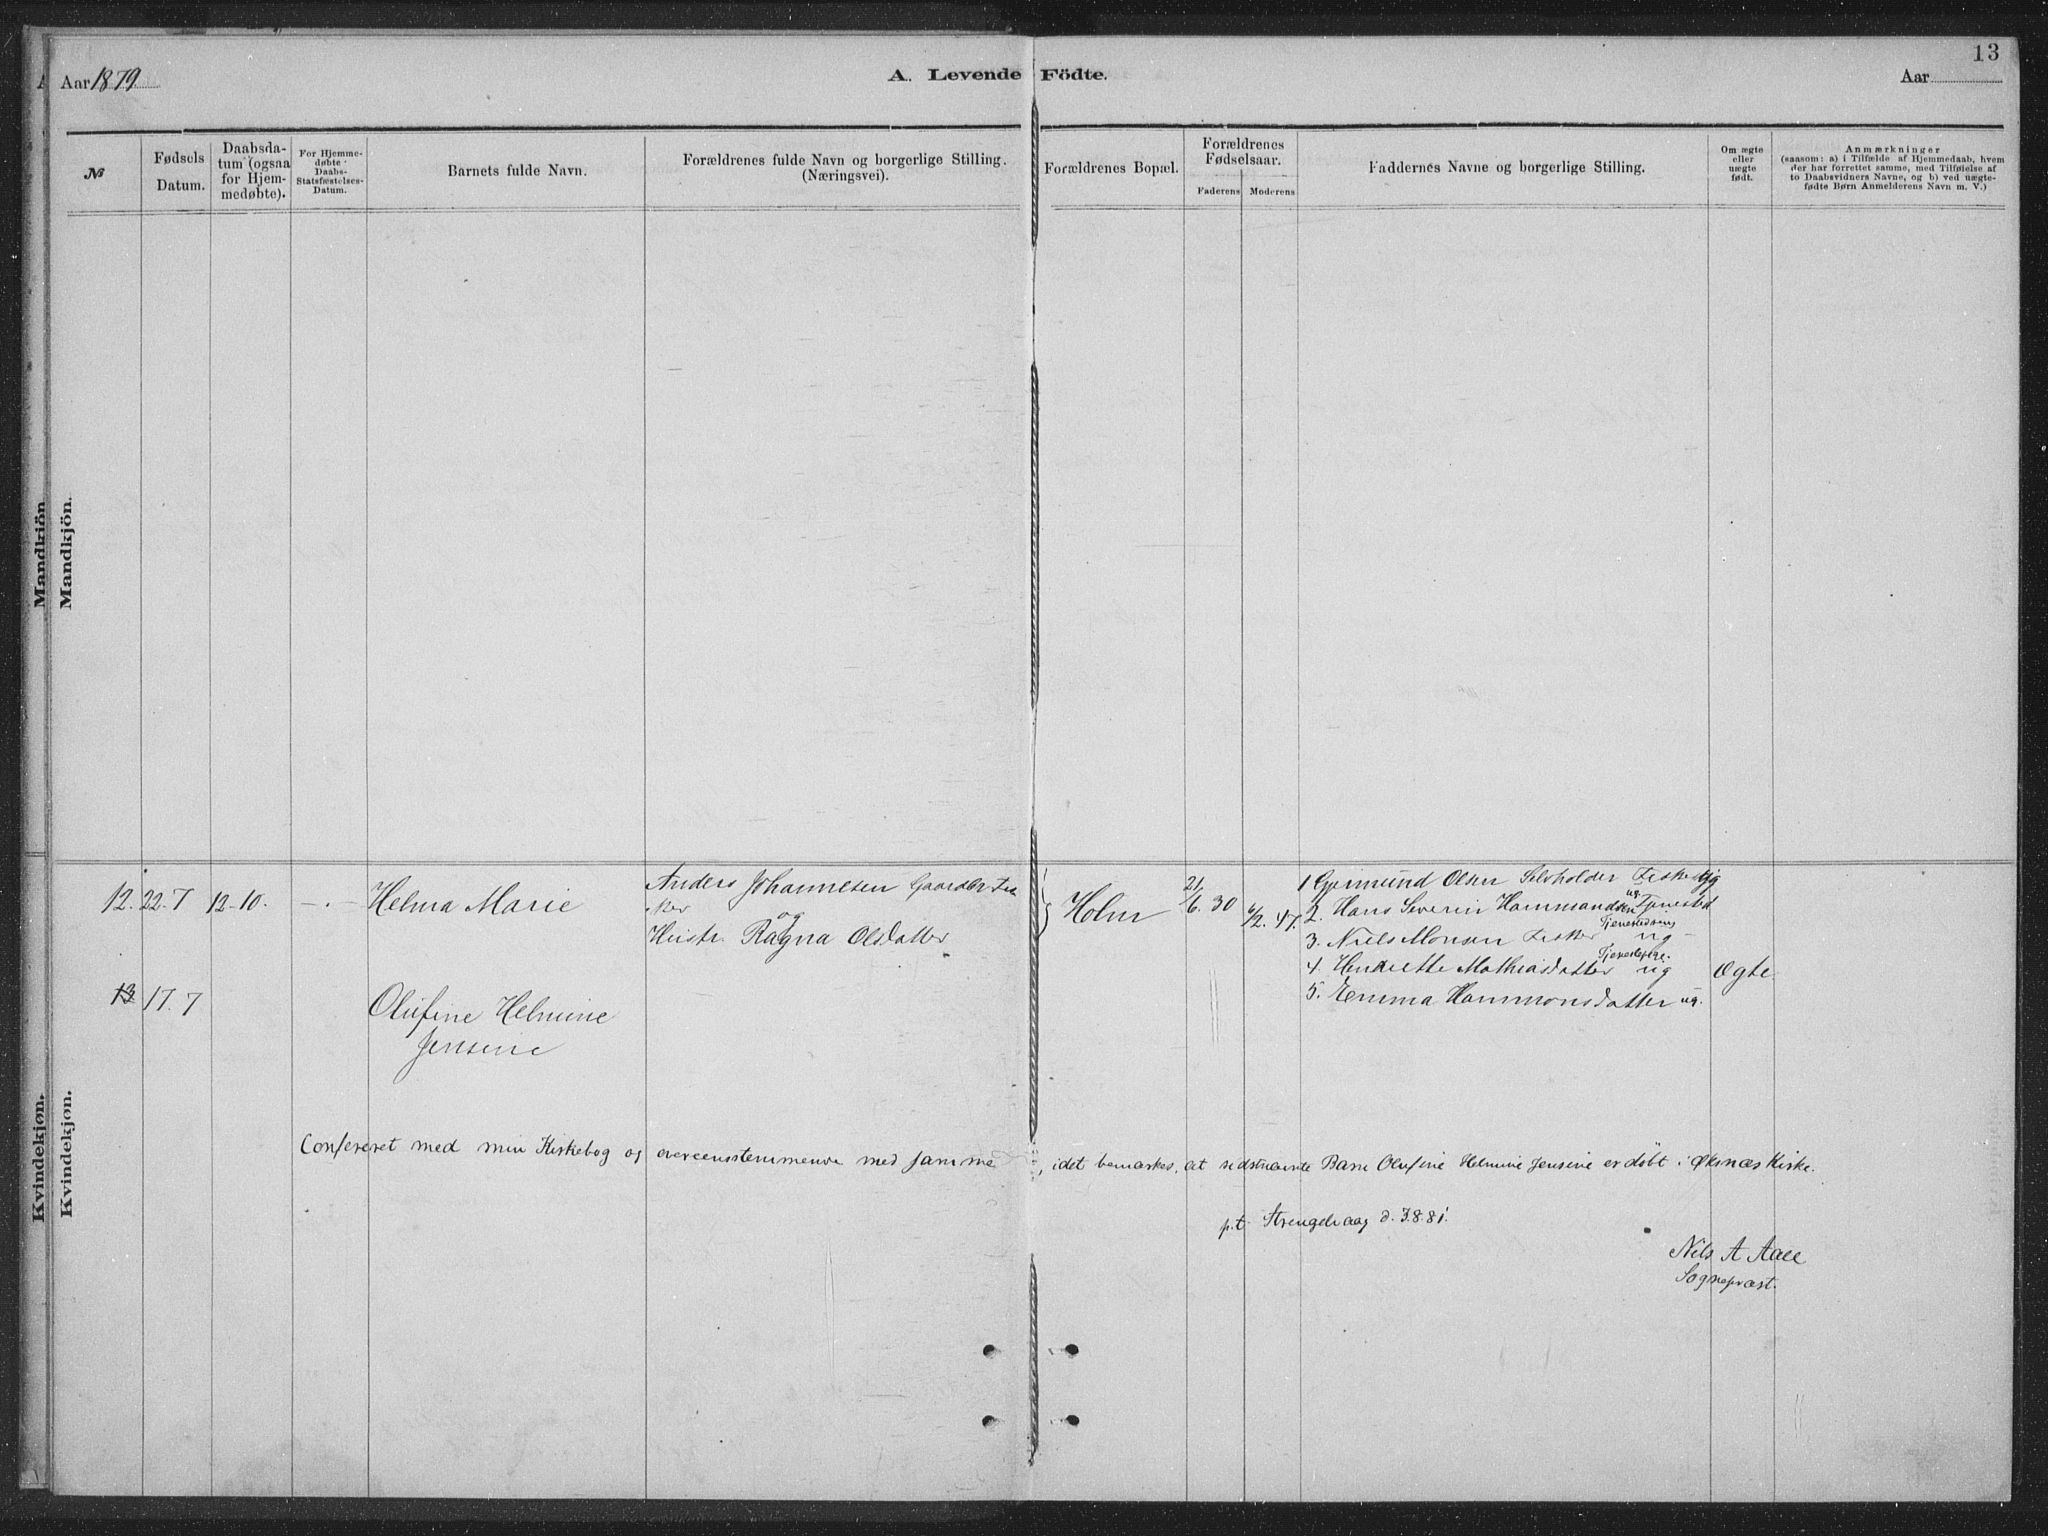 Aar 1879
A. Levende Födte.
13
Aar
№
Fødsels
Datum.
Daabsda-
tum (ogsaa
for Hjem-
medøbte).
For Hjemme-
døbte
Daabs-
Statsfæstelses-
Datum.
Barnets fulde Navn.
Forældrenes fulde Navn og borgerlige Stilling.
(Næringsvei).
Forældrenes Bopæl.
Forældrenes
Fødselsaar.
Faderens
Moderens
Faddernes Navne og borgerlige Stilling.
Om ægte
eller
uægte
født.
Anmærkninger
(saasom: a) i Tilfælde af Hjemmedaab, hvem
der har forrettet samme, med Tilføielse af
to Daabsvidners Navne, og b) ved uægte-
fødte Børn Anmelderens Navn m. V.)
Mandkjön
Mandkjön.
Kvindekjøn.
Kvindekjøn.
12. 22-7 12-10. -.- Helma Marie
Anders Johannesen Gaardbr. Fis
ker
og
Hustr. Ragna Olsdatter
Holm
21/6. 30
6/2. 47.
1. Gjermund Olsen Selvholder Fisker Ug
2. Hans Severin Hammandsen ug.
Tjenested
3. Niels Monsen Fisker ug
4. Henriette Mathiasdatter ug
5. Emma Hammonsdatter ug.
Ægte
13 17. 7
Olufine Helmine
Jensine
Confereret med min Kirkebog og overensstemmende med samme, idet bemærkes, at sidstnævnte Barn Olufine Helmine Jensine er døbt i Øksnæs Kirke.
p.t. Strengelvaag d. 3.8.81.
Nils A Aall
Sognepræst.